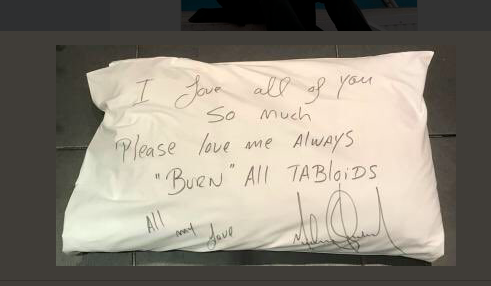 I love all of you
so much
Please love me ALWAYS
"BURN" All TABloiDS
All my love